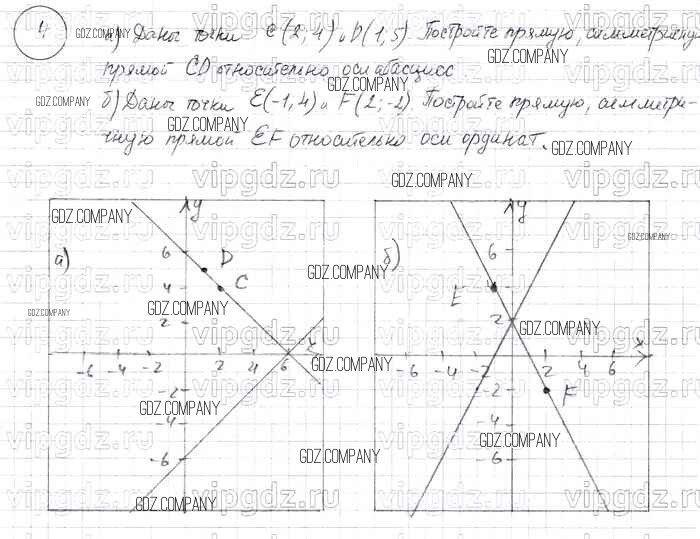 1. а) Даны точки C(2; 4) и D(1; 5). Постройте прямую, симметричную
прямой CD относительно оси абсцисс
б) Даны точки E(-1, 4) и F(2; -2). Постройте прямую, симметри-
чную прямой EF относительно оси ординат.
GDZ.COMPANY
vipgdz.ru
а)
y
D
C
6
4
2
-6 -4 -2 2 4 6 x
-2
-4
-6
б)
y
E
F
6
4
2
-6 -4 -2 2 4 6 x
-2
-4
-6